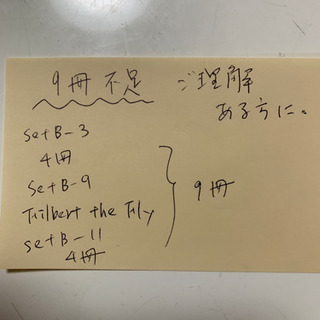 9冊不足
ご理解
ある方に。
SetB-3
4冊
SetB-9
Filbert the Fly
SetB-11
4冊
9冊